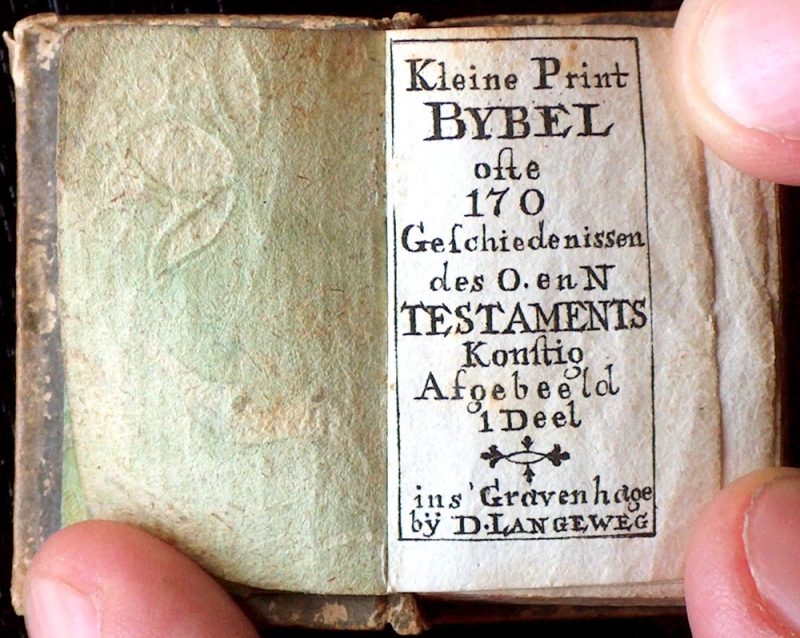 Kleine Print
BYBEL
ofte
170
Geſchiedenissen
des O. en N
TESTAMENTS
Konſtig
Afgebeeld
1 Deel
ins' Gravenhage
bÿ D. LANGEWEG